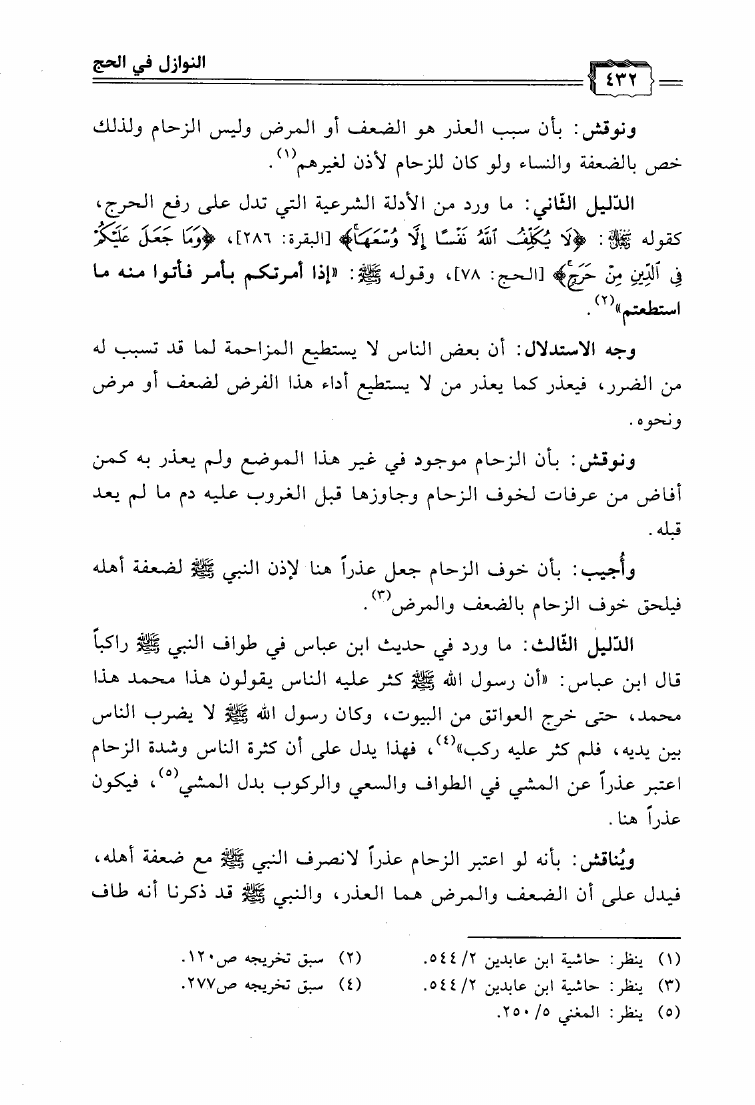 النوازل في الحج
٤٣٢
ونوقش: بأن سبب العذر هو الضعف أو المرض وليس الزحام ولذلك
خص بالضعفة والنساء ولو كان للزحام لأذن لغيرهم(١).
الدّليل الثّاني: ما ورد من الأدلة الشرعية التي تدل على رفع الحرج،
كقوله ﷻ: ﴿لَا يُكَلِّفُ ٱللَّهُ نَفْسًا إِلَّا وُسْعَهَا﴾ [البقرة: ٢٨٦]، ﴿وَمَا جَعَلَ عَلَيْكُمْ
فِي ٱلدِّينِ مِنْ حَرَجٍ﴾ [الحج: ٧٨]، وقوله ﷺ: «إذا أمرتكم بأمر فأتوا منه ما
استطعتم»(٢).
وجه الاستدلال: أن بعض الناس لا يستطيع المزاحمة لما قد تسبب له
من الضرر، فيعذر كما يعذر من لا يستطيع أداء هذا الفرض لضعف أو مرض
ونحوه.
ونوقش: بأن الزحام موجود في غير هذا الموضع ولم يعذر به كمن
أفاض من عرفات لخوف الزحام وجاوزها قبل الغروب عليه دم ما لم يعد
قبله.
وأُجيب: بأن خوف الزحام جعل عذراً هنا لإذن النبي ﷺ لضعفة أهله
فيلحق خوف الزحام بالضعف والمرض(٣).
الدّليل الثّالث: ما ورد في حديث ابن عباس في طواف النبي ﷺ راكباً
قال ابن عباس: «أن رسول الله ﷺ كثر عليه الناس يقولون هذا محمد هذا
محمد، حتى خرج العواتق من البيوت، وكان رسول الله ﷺ لا يضرب الناس
بين يديه، فلم كثر عليه ركب»(٤)، فهذا يدل على أن كثرة الناس وشدة الزحام
اعتبر عذراً عن المشي في الطواف والسعي والركوب بدل المشي(٥)، فيكون
عذراً هنا.
ويُناقش: بأنه لو اعتبر الزحام عذراً لانصرف النبي ﷺ مع ضعفة أهله،
فيدل على أن الضعف والمرض هما العذر، والنبي ﷺ قد ذكرنا أنه طاف
(١) ينظر: حاشية ابن عابدين ٥٤٤/٢.
(٢) سبق تخريجه ص١٢٠.
(٣) ينظر: حاشية ابن عابدين ٥٤٤/٢.
(٤) سبق تخريجه ص٢٧٧.
(٥) ينظر: المغني ٢٥٠/٥.